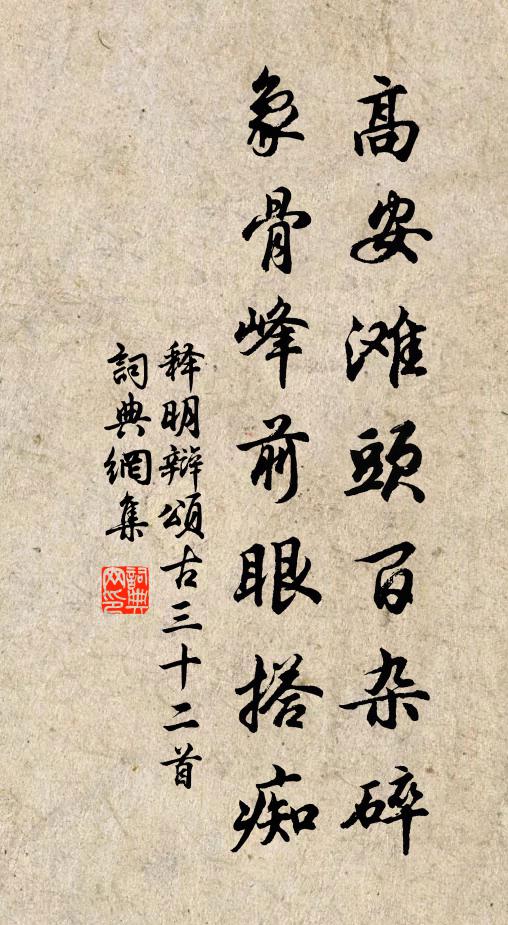 高安滩頭百杂碎
象骨峰前眼搭痴
释明辩頌古三十二首
詞典網集
詞典網印